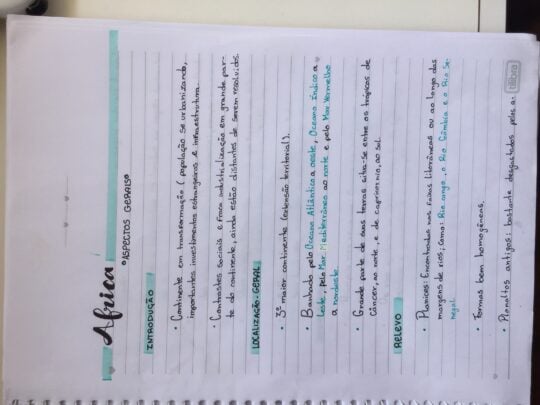 África
"ASPECTOS GERAIS"
INTRODUÇÃO
• Continente em transformação (população se urbanizando,
importantes investimentos estrangeiros e infraestrutura.
• Contrastes sociais e fraca industrialização em grande par-
te do continente, ainda estão distantes de serem resolvidos.
LOCALIZAÇÃO-GERAL
• 3º maior continente (extensão territorial).
• Banhado pelo Oceano Atlântico a oeste, Oceano Índico a
leste, pelo Mar Mediterrâneo ao norte e pelo Mar Vermelho
a nordeste.
• Grande parte de suas terras situa-se entre os trópicos de
Câncer, ao norte, e de capricórnio, ao sul.
RELEVO
• Planícies: Encontradas nas faixas litorâneas ou ao longo das
margens de rios, como: Rio congo, o Rio Gâmbia e o Rio Se-
negal.
• Formas bem homogêneas.
• Planaltos antigos: bastante desgastados pelas a:
tilibra